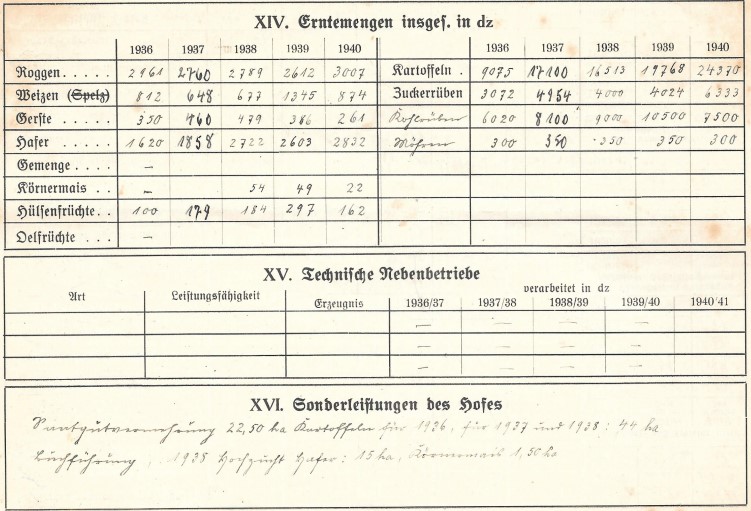 XIV. Erntemengen insges. in dz
1936 1937 1938 1939 1940 1936 1937 1938 1939 1940
Roggen . . . . . 2961 2760 2789 2612 3007 Kartoffeln . 9075 17100 16513 19768 24370
Weizen (Spelz) 812 648 677 1345 874 Zuckerrüben 3072 4954 4000 4024 6333
Gerste . . . . . 350 460 479 386 261 Kohlrüben 6020 8100 9000 10500 7500
Hafer . . . . . 1620 1858 2722 2603 2832 Möhren 300 350 350 350 300
Gemenge . . . . –
Körnermais . . – 54 49 22
Hülsenfrüchte . . 100 179 184 297 162
Oelfrüchte . . . –
XV. Technische Nebenbetriebe
Art Leistungsfähigkeit Erzeugnis verarbeitet in dz
1936/37 1937/38 1938/39 1939/40 1940/41
– – – –
– – – –
– – – –
XVI. Sonderleistungen des Hofes
Saatgutvermehrung 22,50 ha Kartoffeln für 1936, für 1937 und 1938: 44 ha
Buchführung, 1938 Hochzucht Hafer: 15 ha, Körnermais 1,50 ha